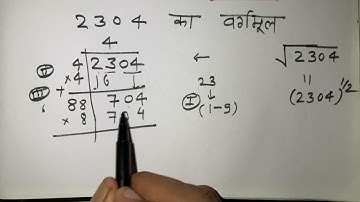 2304 का वर्गमूल
4
4 2304 ← √2304
II ×4 16 23 11
III + 88 704 I (1-9) (2304)1/2
× 8 704